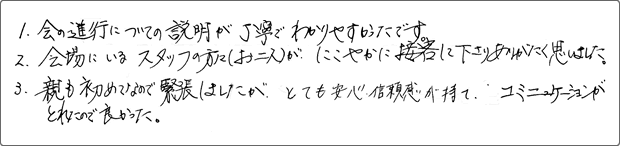 1. 会の進行についての説明が丁寧でわかりやすかったです。
2. 会場にいるスタッフの方々(お二人)が、にこやかに接客して下さりありがたく思いました。
3. 親も初めてなので緊張しましたが、とても安心・信頼感が持て、コミニュケーションが
とれたので良かった。